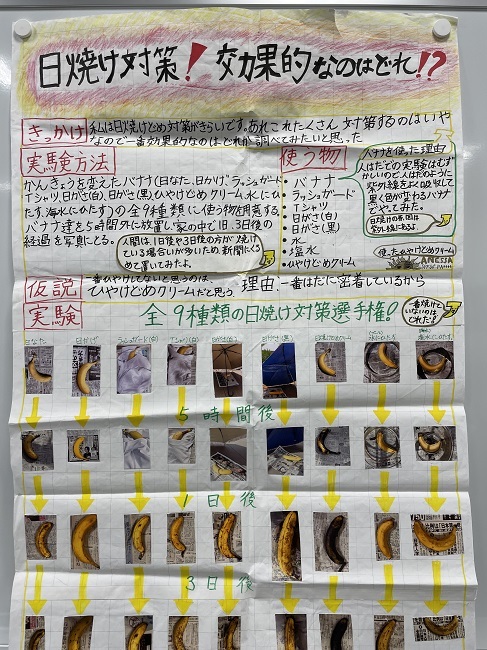 日焼け対策！効果的なのはどれ!?
きっかけ
私は日焼けどめ対策がきらいです。あれこれたくさん対策するのはいや
なので一番効果的なのはどれか調べてみたいと思った
実験方法
かんきょうを変えたバナナ(日なた、日かげ、ラッシュガード
Tシャツ、日がさ(白)、日がさ(黒)、ひやけどめクリーム、水にひ
たす、海水にひたす)の全9種類に使う物を用意する。
バナナ達を5時間外に放置し家の中で1日、3日後の
経過を写真にとる。
人間は、1日後や3日後の方が焼け
ている場合いが多いため、新聞にくる
めて置いてみたよ。
使う物
・バナナ
・ラッシュガード
・Tシャツ
・日がさ(白)
・日がさ(黒)
・水
・塩水
・ひやけどめクリーム
バナナを使った理由
人はだでの実験はむず
かしいので人はだのように
紫外線をよく吸収して
黒く色が変わるバナナ
でやってみた。
日焼けの原因は
紫外線にあるよ。
使ったひやけどめクリーム
ANESSA
仮説
一番ひやけしてないと思うのは、
ひやけどめクリームだと思う。理由、一番はだに密着しているから
実験
全9種類の日焼け対策選手権！
一番焼けて
いないのは
どれだ!?
日なた
日かげ
ラッシュガード(白)
Tシャツ(白)
日がさ(白)
日がさ(黒)
日焼けどめクリーム
水にひたす
海水にひたす
5時間後
1日後
3日後